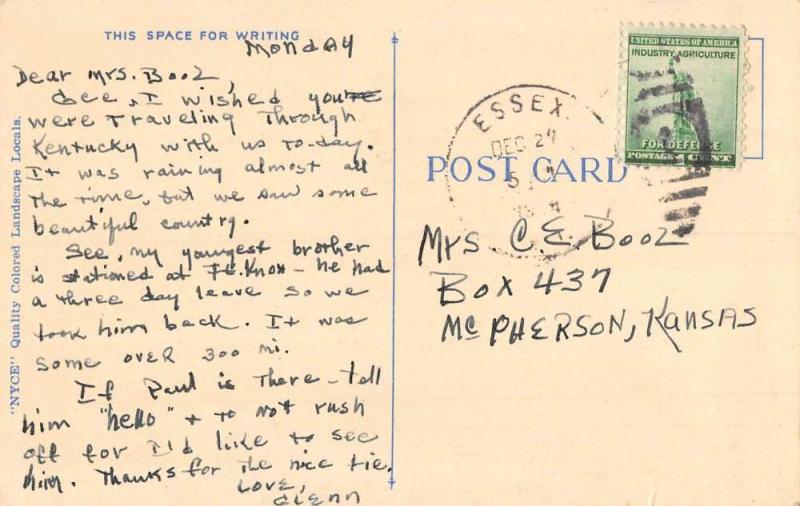 THIS SPACE FOR WRITING
Monday
Dear Mrs. Booz,
Gee, I wished you're
were traveling through
Kentucky with us to-day.
It was raining almost all
the time, but we saw some
beautiful country.
See, my youngest brother
is stationed at Ft. Knox - he had
a three day leave so we
took him back. It was
some over 300 mi.
If Paul is there - tell
him "hello" + to not rush
off for I'd like to see
him. Thanks for the nice tie.
Love,
Glenn
"NYCE" Quality Colored Landscape Locals.
ESSEX
DEC 24
5
UNITED STATES OF AMERICA
INDUSTRY-AGRICULTURE
FOR DEFENSE
POSTAGE 1 CENT
POST CARD
Mrs C E. Booz
Box 437
McPHERSON, Kansas